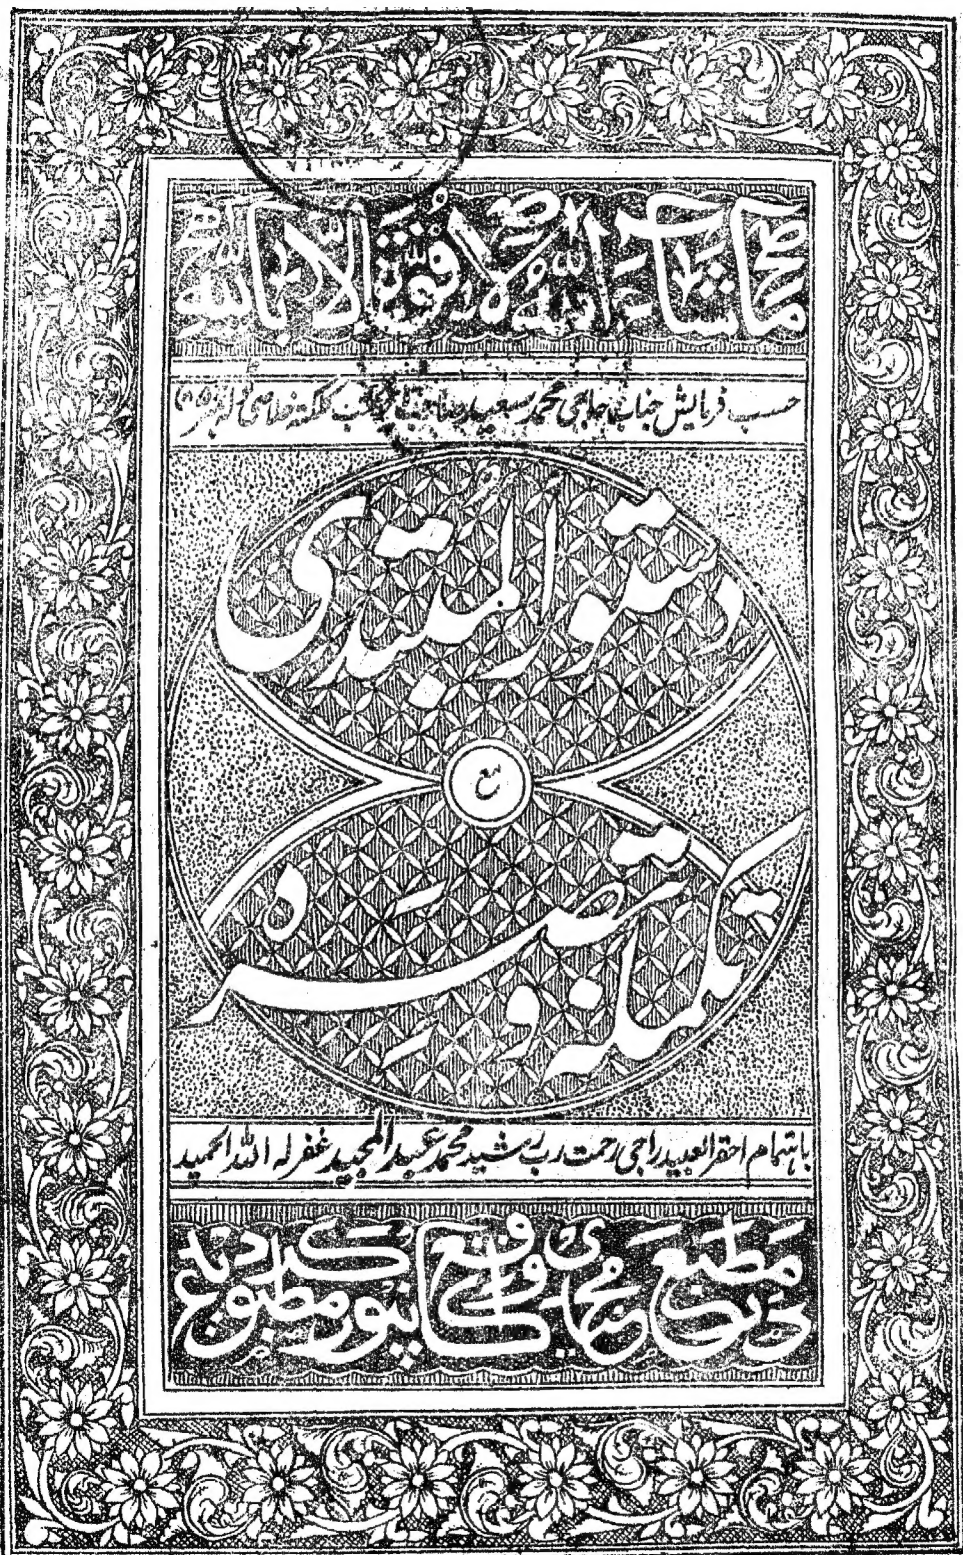 ما شاء الله لا قوة الا بالله
حسب فرمایش جناب حاجی محمد سعید صاحب تاجر کتب کلکته خلاصی ٹوله نمبر
دستور المبتدی
مع
تکمله و تبصره
باہتمام احقر العبید راجی رحمت رب رشید محمد عبد المجید غفر له الله الحمید
مطبع مجیدی واقع کانپور مطبوع گردید